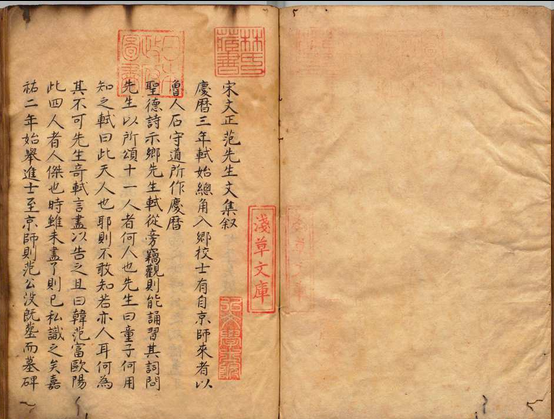 林氏藏書
日本政府圖書
宋文正范先生文集叙
慶曆三年軾始總角入鄉校士有自京師來者以
魯人石守道所作慶曆
聖德詩示鄉先生軾從旁竊觀則能誦習其詞問
先生以所頌十一人者何人也先生曰童子何用
知之軾曰此天人也耶則不敢知若亦人耳何為
其不可先生奇軾言盡以告之且曰韓范富歐陽
此四人者人傑也時雖未盡了則已私識之矣嘉
祐二年始舉進士至京師則范公沒既塟而墓碑
淺草文庫